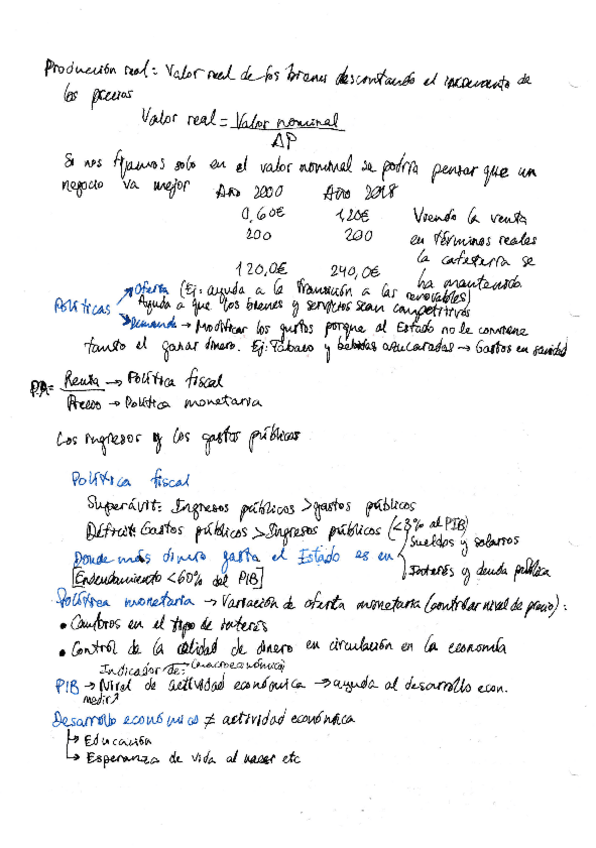 Producción real = Valor real de los bienes descontando el incremento de
los precios
Valor real = Valor nominal
ΔP
Si nos fijamos solo en el valor nominal se podría pensar que un
negocio va mejor
Año 2000 Año 2018
0,60€ 1,20€ Viendo la venta
200 200 en términos reales
la cafetería se
120,0€ 240,0€ ha mantenido
Políticas
Oferta (Ej: ayuda a la transición a las renovables)
Ayuda a que los bienes y servicios sean competitivos
Demanda → Modificar los gustos porque al Estado no le conviene
tanto el ganar dinero. Ej: Tabaco y bebidas azucaradas → Gastos en sanidad
PA = Renta → Política fiscal
Precio → Política monetaria
Los ingresos y los gastos públicos
Política fiscal
Superávit: Ingresos públicos > gastos públicos
Déficit: Gastos públicos > Ingresos públicos (<3% al PIB)
Donde más dinero gasta el Estado es en
Sueldos y salarios
Interés y deuda pública
[Endeudamiento <60% del PIB]
Política monetaria → Variación de oferta monetaria (controlar nivel de precio):
• Cambios en el tipo de interés
• Control de la cantidad de dinero en circulación en la economía
Indicador de: (macroeconómico)
PIB → Nivel de actividad económica → ayuda al desarrollo econ.
medir
Desarrollo económico ≠ actividad económica
↳ Educación
↳ Esperanza de vida al nacer etc